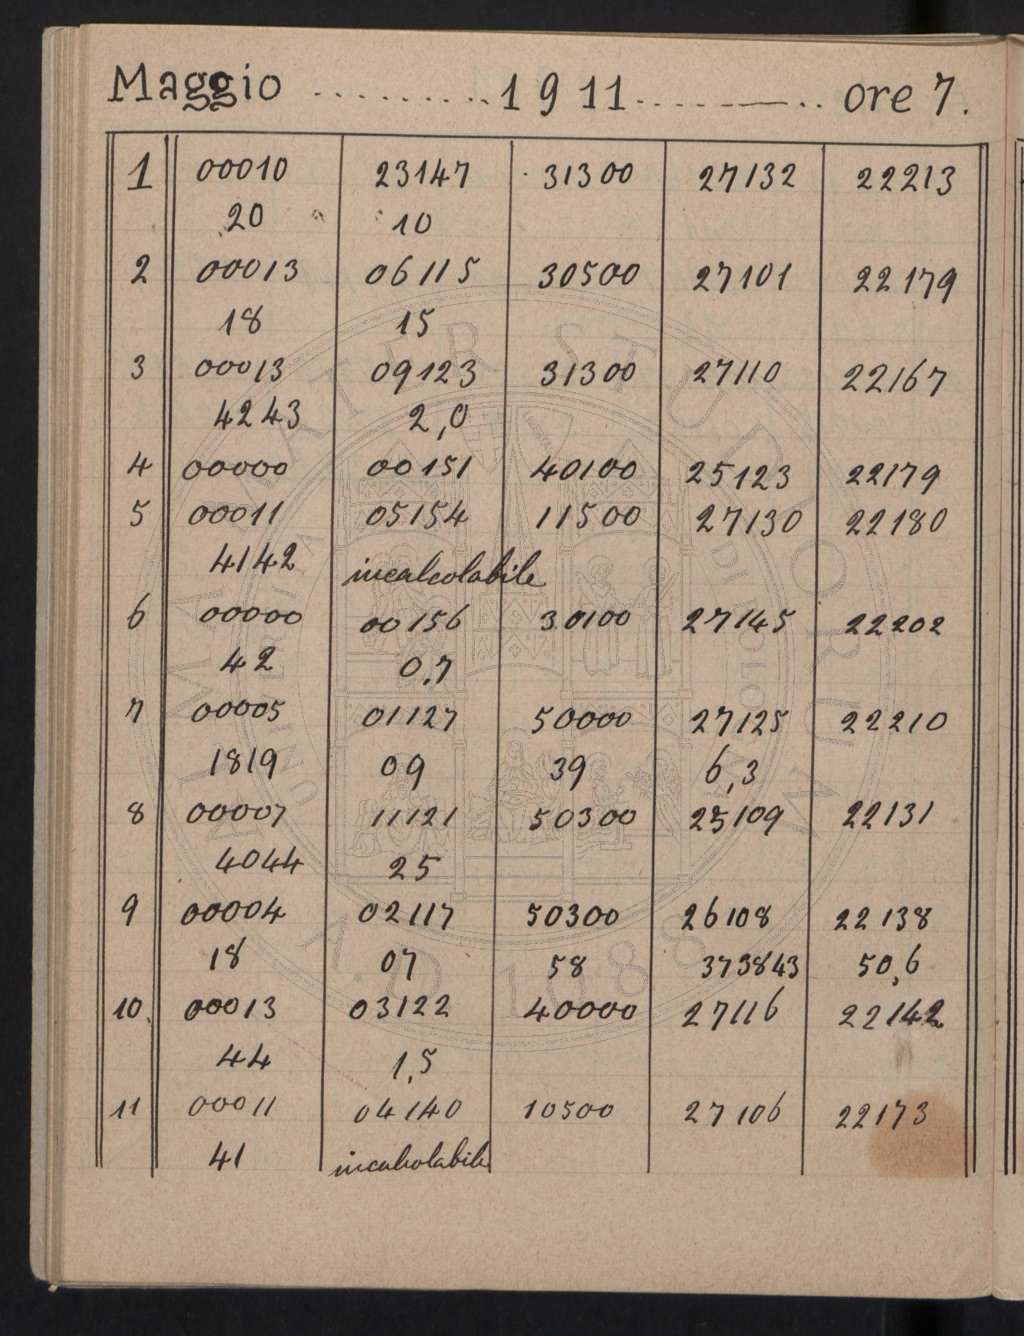 Maggio 1911 ore 7.
1 00010 23147 31300 27132 22213
20 10
2 00013 06115 30500 27101 22179
18 15
3 00013 09123 31300 27110 22167
4243 2,0
4 00000 00151 40100 25123 22179
5 00011 05154 11500 27130 22180
4142 incalcolabile
6 00000 00156 30100 27145 22202
42 0,7
7 00005 01127 50000 27125 22210
1819 09 39 6,3
8 00007 11121 50300 25109 22131
4044 25
9 00004 02117 50300 26108 22138
18 07 58 373843 50,6
10. 00013 03122 40000 27116 22142
44 1,5
11 00011 04140 10500 27106 22173
41 incalcolabile
ALMA MATER STUDIORUM
A.D. 1088